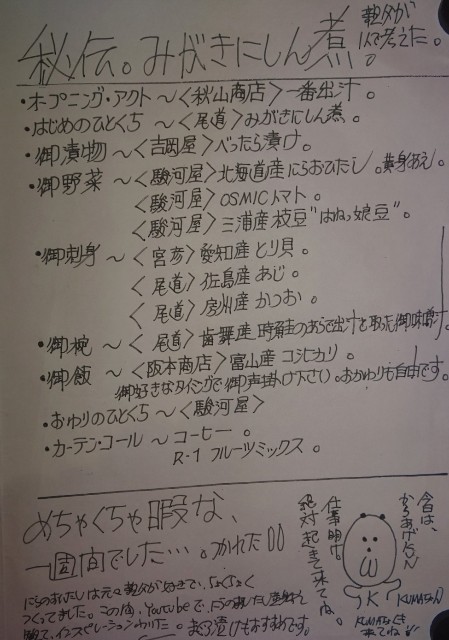 秘伝。みがきにしん煮。
親父が
〆で考えた。
・オープニング・アクト〜〈秋山商店〉一番出汁。
・はじめのひとくち〜〈尾道〉みがきにしん煮。
・御漬物〜〈吉岡屋〉べったら漬け。
・御野菜〜〈駿河屋〉北海道産にらおひたし。黄身あえ。
〈駿河屋〉OSMICトマト。
〈駿河屋〉三浦産枝豆"はねっ娘豆"。
・御刺身〜〈宮彦〉愛知産とり貝。
〈尾道〉佐島産あじ。
〈尾道〉房州産かつお。
・御椀〜〈尾道〉歯舞産時鮭のあらで出汁を取った御味噌汁。
・御飯〜〈阪本商店〉富山産コシヒカリ。
御好きなタイミングで御声掛け下さい。おかわりも自由です。
・おわりのひとくち〜〈駿河屋〉
・カーテン・コール〜コーヒー。
R-1 フルーツミックス。
めちゃくちゃ暇な、
一週間でした…。つかれた
にらのおひたしは元々親父が好きで、ちょくちょく
つくってました。この間、Youtubeで、にらのおひたし
インスピレーション
もおすすめです。
仕事明け。
絶対起きて来てね。
今日は、
からあげクン
K
KUMAさん
KUMAさんも
来てね!!